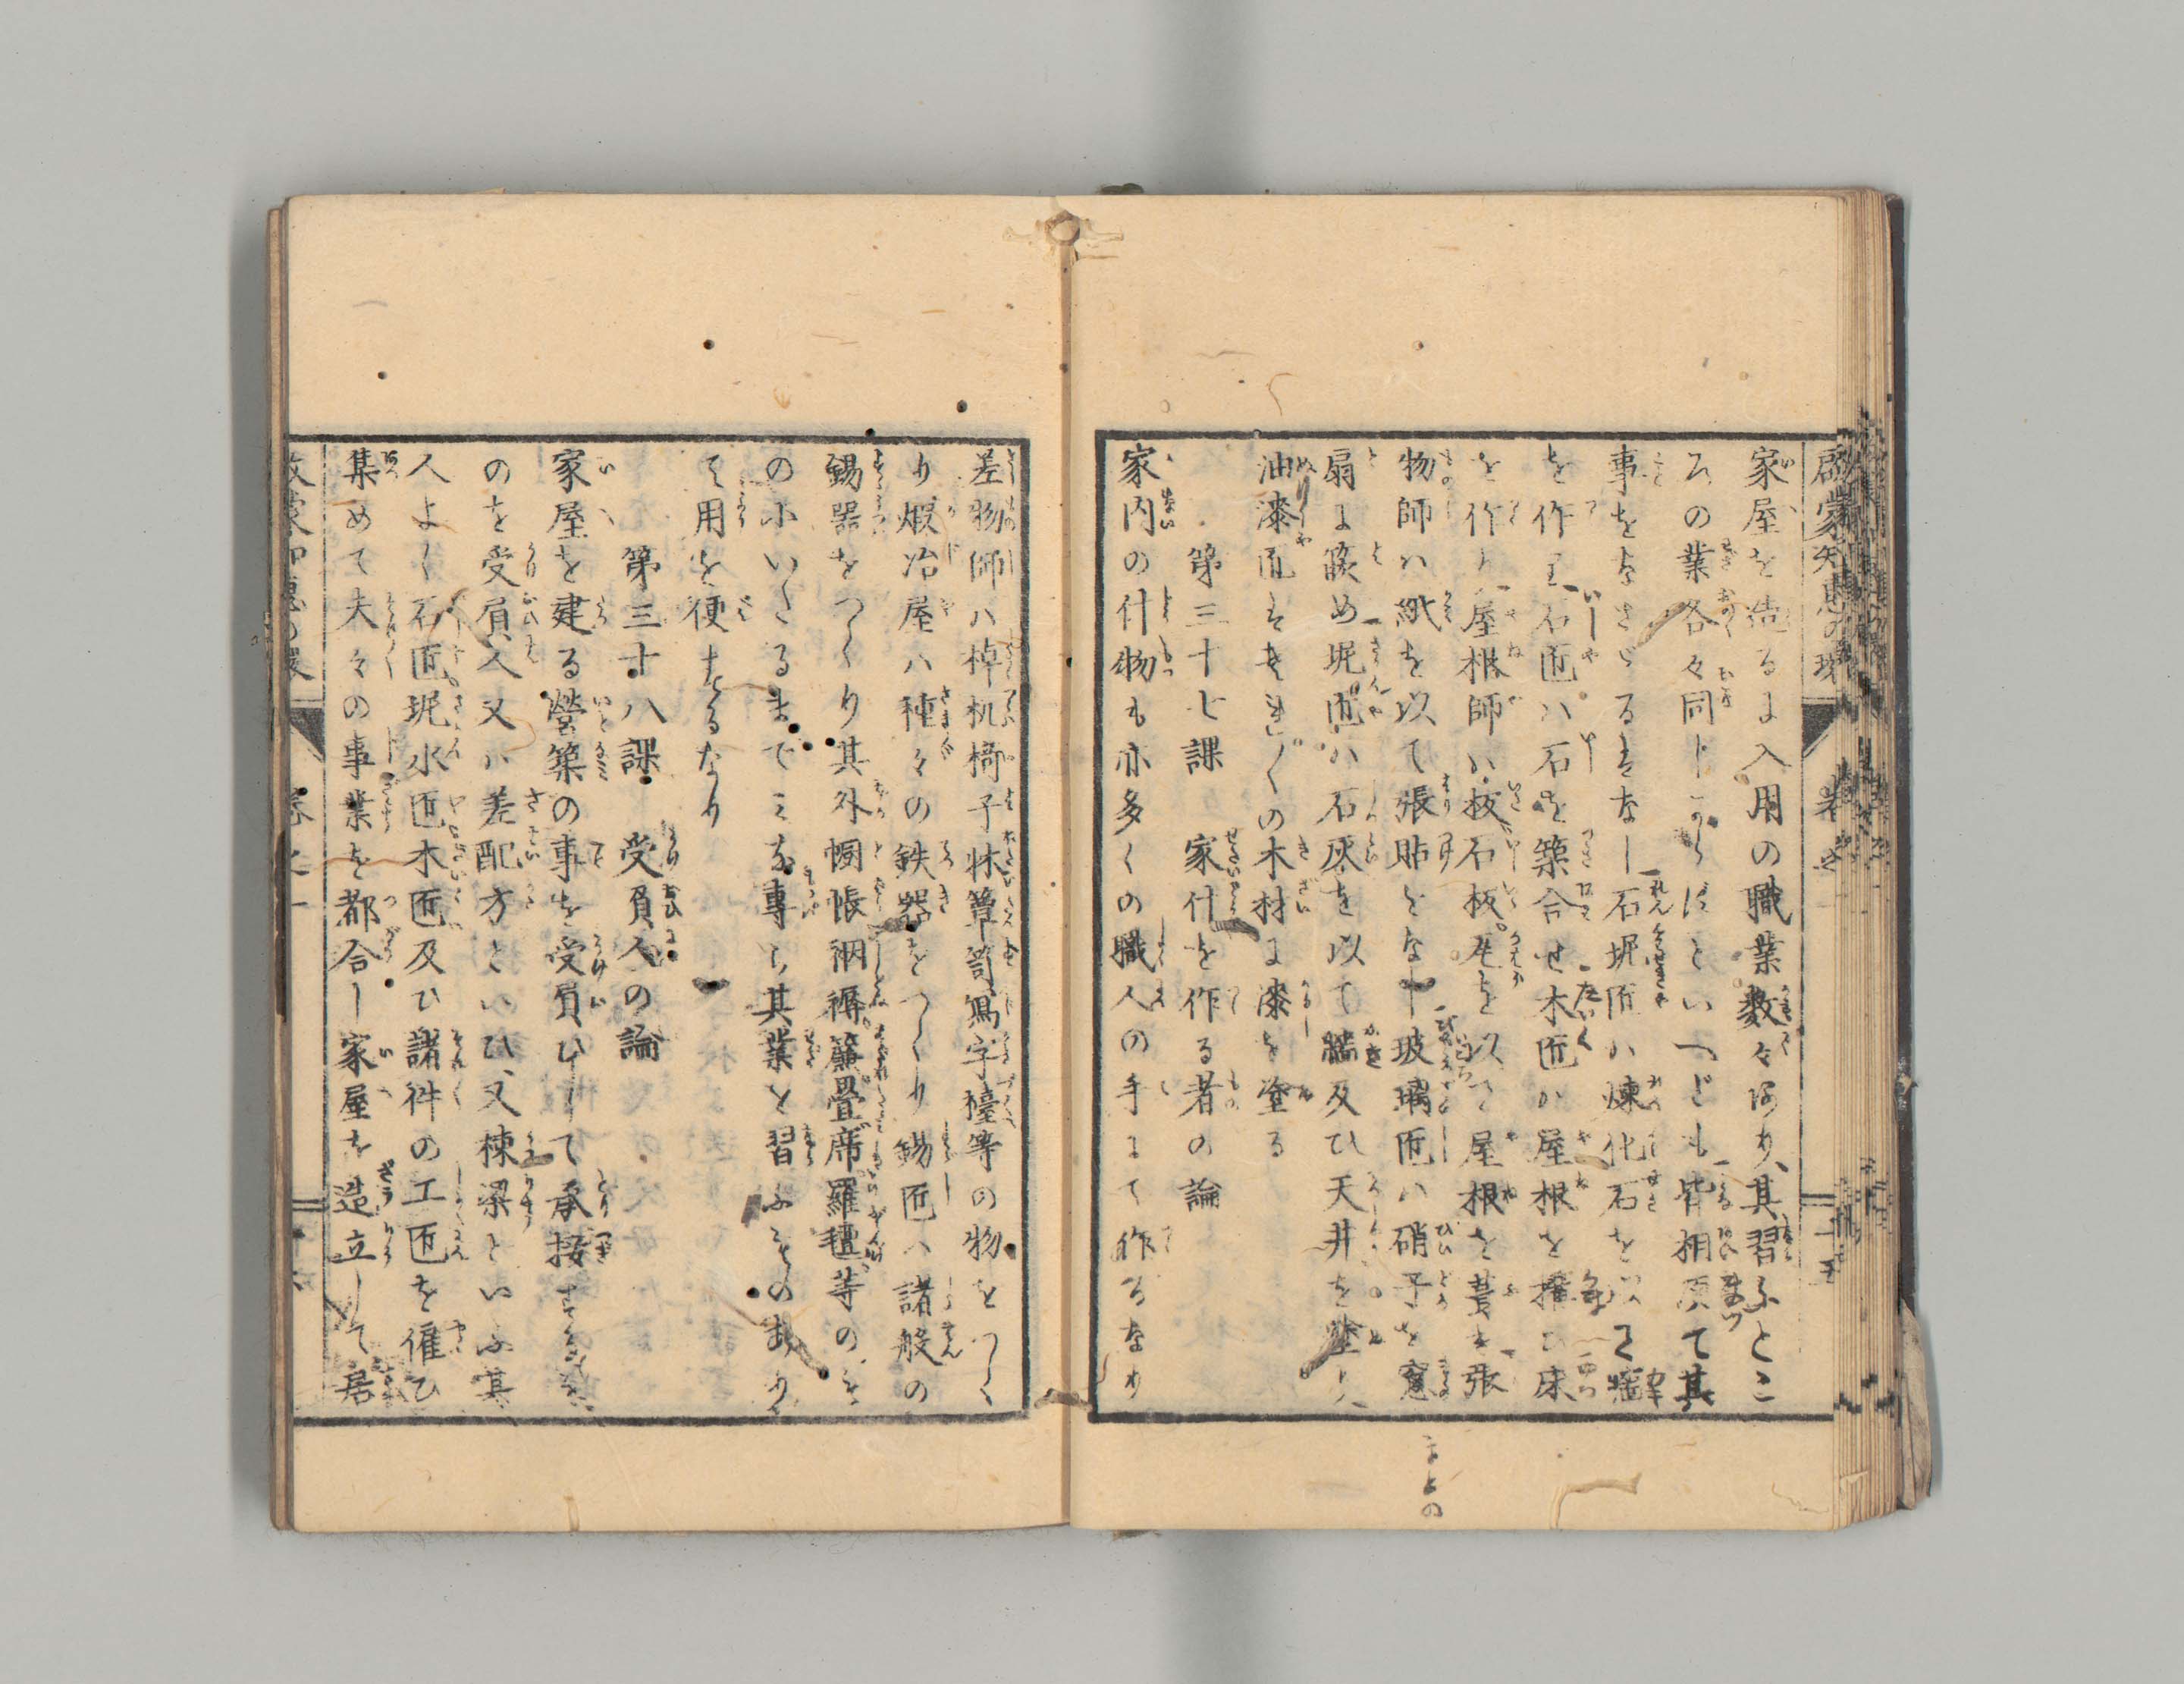 啓蒙知恵の環 巻之一 十五
家屋を造るに入用の職業数々あり其習ふとこ
ろの業各々同じからずといへども皆相須て其
事をなさゞるはなし石坭匠ハ煉化石を以て墻
を作り石匠ハ石を築合せ木匠ハ屋根を搆ひ床
を作り屋根師ハ板石板瓦を以て屋根を葺き張
物師ハ紙を以て張貼をなし玻璃匠ハ硝子を窓
扇に篏め坭匠ハ石灰を以て牆及ひ天井を塗り
油漆匠はそれ〴〵の木材に漆を塗る
第三十七課 家什を作る者の論
家内の什物も亦多くの職人の手にて作るなり
まどの
差物師ハ棹机椅子牀簟笥寫字檯等の物をつく
り煆冶屋ハ種々の鉄器をつくり錫匠ハ諸般の
錫器をつくり其外㡡帳裀褥簾畳席羅氊等のも
のにいたるまでミな專ら其業を習ふものあり
て用を便するなり
第三十八課 受負人の論
家屋を建る營築の事を受負ひして承接する
のを受負人又ハ差配方といひ又棟梁といふ其
人よく石匠坭水匠木匠及ひ諸件の工匠を傭ひ
集めて夫々の事業を都合し家屋を造立して居